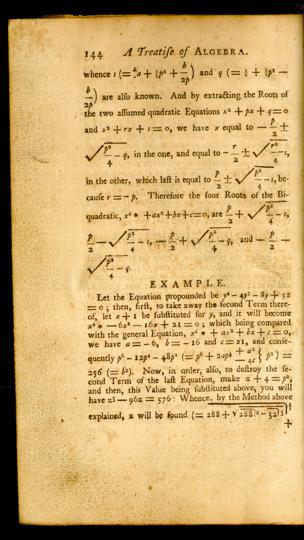 144 A Treatiſe of ALGEBRA.
whence s (= a/2 + ½p² + b/2p) and q (= a/2 + ½p² —
b/2p) are alſo known. And by extracting the Roots of
the two aſſumed quadratic Equations x² + px + q = 0
and x² + rx + s = 0, we have x equal to — p/2 ±
√p²/4 — q, in the one, and equal to — r/2 ± √r²/4 — s,
in the other, which laſt is equal to p/2 ± √p²/4 — s, be-
cauſe r = — p. Therefore the four Roots of the Bi-
quadratic, x⁴ * + ax² + bx + c = 0, are p/2 + √p²/4 — s,
p/2 — √p²/4 — s, — p/2 + √p²/4 — q, and — p/2 —
√p²/4 — q.
EXAMPLE.
Let the Equation propounded be y⁴ — 4y³ — 8y + 32
= 0; then, firſt, to take away the ſecond Term there-
of, let x + 1 be ſubſtituted for y, and it will become
x⁴ * — 6x² — 16x + 21 = 0; which being compared
with the general Equation, x⁴ * + ax² + bx + c = 0,
we have a = — 6, b = — 16 and c = 21, and conſe-
quently p⁶ — 12p⁴ — 48p² (= p⁶ + 2ap⁴ + a² — 4c } p²) =
256 (= b²). Now, in order, alſo, to deſtroy the ſe-
cond Term of the laſt Equation, make z + 4 = p²;
and then, this Value being ſubſtituted above, you will
have z³ — 96z = 576: Whence, by the Method above
explained, z will be found (= 288 + √288)² — 32)³)⅓
+